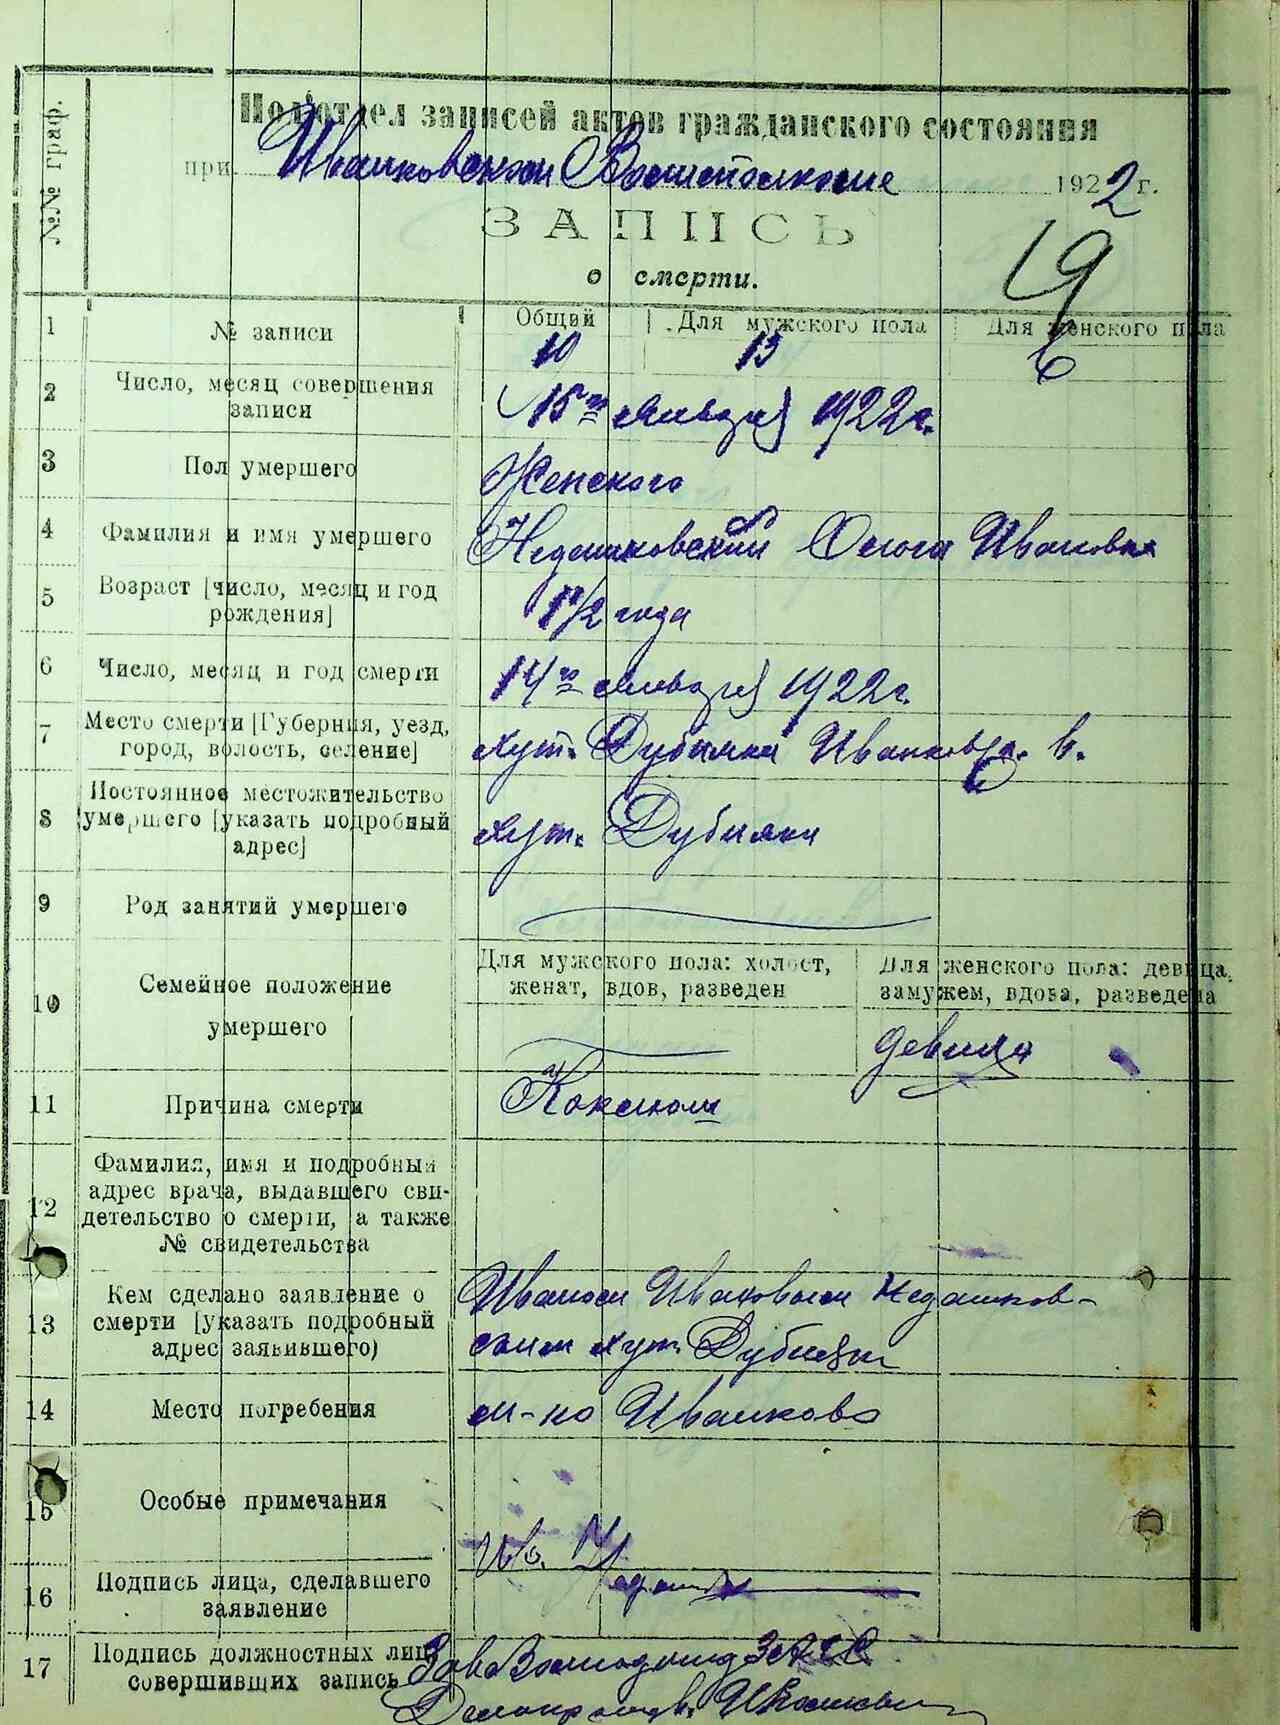 №№ граф.
Подотдел записей актов гражданского состояния
при Иванковском Волисполкоме 1922 г.
ЗАПИСЬ
о смерти.
19
1 № записи Общий Для мужского пола Для женского пола
10 13 6
2 Число, месяц совершения
записи 15го января 1922 г.
3 Пол умершего Женского
4 Фамилия и имя умершего Недашковский Ольга Ивановна
5 Возраст [число, месяц и год
рождения] 1 1/2 года
6 Число, месяц и год смерти 14го января 1922 г.
7 Место смерти [Губерния, уезд,
город, волость, селение] хут. Дубняки Иванковск. в.
8 Постоянное местожительство
умершего [указать подробный
адрес] хут. Дубняки
9 Род занятий умершего
10 Семейное положение
умершего
Для мужского пола: холост,
женат, вдов, разведен
Для женского пола: девица,
замужем, вдова, разведена
девица
11 Причина смерти Коклюш
12 Фамилия, имя и подробный
адрес врача, выдавшего сви-
детельство о смерти, а также
№ свидетельства
13 Кем сделано заявление о
смерти [указать подробный
адрес заявившего)
Иваном Ивановым Недашков-
ским хут. Дубняки
14 Место погребения м-ко Иванков
15 Особые примечания
16 Подпись лица, сделавшего
заявление
Ив.
17 Подпись должностных лиц,
совершивших запись
Зав ЗАГС
Делопроизв.